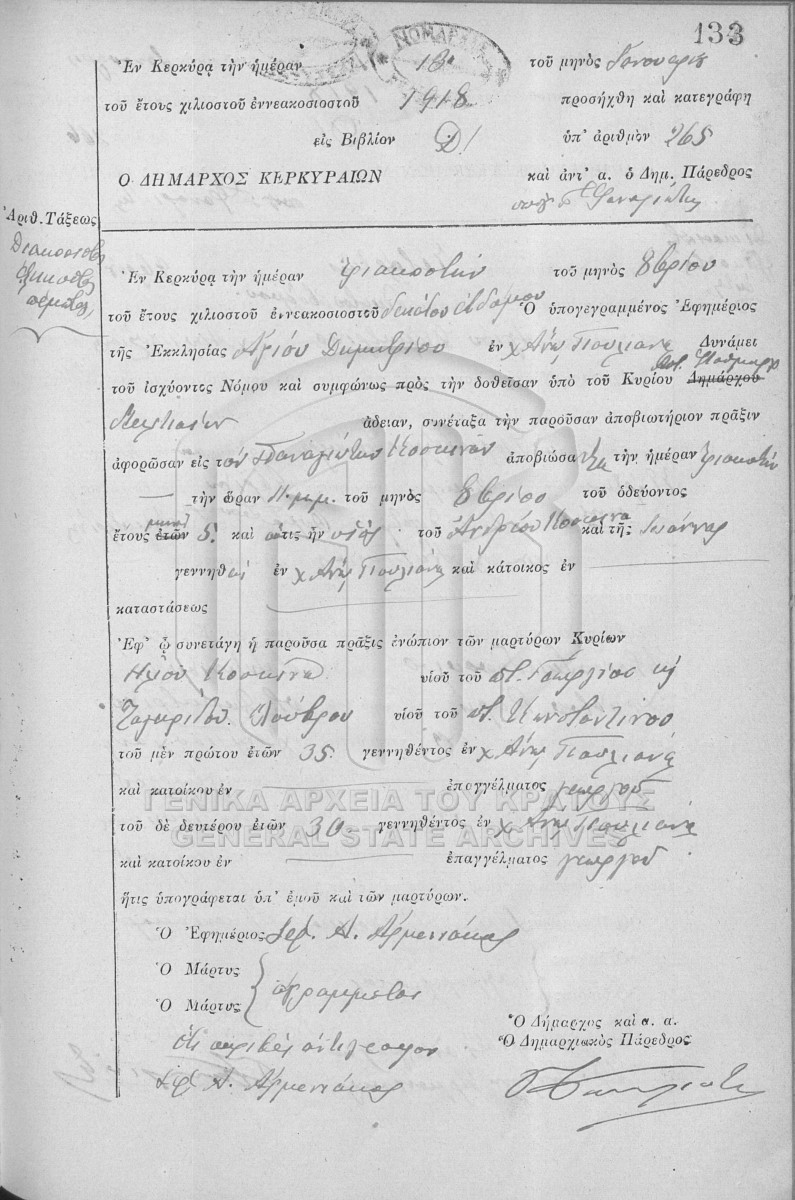 133
ΝΟΜΑΡΧΙ
Ἐν Κερκύρᾳ τὴν ἡμέραν 13 τοῦ μηνὸς Ἰανουαρίου
τοῦ ἔτους χιλιοστοῦ ἐννεακοσιοστοῦ 1918 προσήχθη καὶ κατεγράφη
εἰς Βιβλίον Δ' ὑπ' ἀριθμὸν 265
Ο ΔΗΜΑΡΧΟΣ ΚΕΡΚΥΡΑΙΩΝ καὶ ἀντ' α. ὁ Δημ. Πάρεδρος
Ἀριθ. Τάξεως
Διακοσιοστὸν
ἑξηκοστὸν
πέμπτον
Ἐν Κερκύρᾳ τὴν ἡμέραν τριακοστὴν τοῦ μηνὸς 8βρίου
τοῦ ἔτους χιλιοστοῦ ἐννεακοσιοστοῦ δεκάτου ἑβδόμου Ὁ ὑπογεγραμμένος Ἐφημέριος
τῆς Ἐκκλησίας Ἁγίου Δημητρίου ἐν χ. Ἄνω Παυλιάνα Δυνάμει
τοῦ ἰσχύοντος Νόμου καὶ συμφώνως πρὸς τὴν δοθεῖσαν ὑπὸ τοῦ Κυρίου Δημάρχου
ἄδειαν, συνέταξα τὴν παροῦσαν ἀποβιωτήριον πρᾶξιν
ἀφορῶσαν εἰς τὸν Παναγιώτην Κοσκινᾶν ἀποβιώσαντα τὴν ἡμέραν τριακοστὴν
τὴν ὥραν 11 π.μ. τοῦ μηνὸς 8βρίου τοῦ ὁδεύοντος
ἔτους ἐτῶν μηνῶν 5. καὶ ὅστις ἦν υἱὸς τοῦ Ἀνδρέου Κοσκινᾶ καὶ τῆς Ἰωάννας
γεννηθεὶς ἐν χ. Ἄνω Παυλιάνα καὶ κάτοικος ἐν
καταστάσεως
Ἐφ' ᾧ συνετάγη ἡ παροῦσα πρᾶξις ἐνώπιον τῶν μαρτύρων Κυρίων
Ἠλίου Κοσκινᾶ υἱοῦ τοῦ ποτ. Γεωργίου κ
υἱοῦ τοῦ ποτ. Κωνσταντίνου
τοῦ μὲν πρώτου ἐτῶν 35 γεννηθέντος ἐν χ. Ἄνω Παυλιάνα
καὶ κατοίκου ἐν ἐπαγγέλματος γεωργοῦ
ΓΕΝΙΚΑ ΑΡΧΕΙΑ ΤΟΥ ΚΡΑΤΟΥΣ
τοῦ δὲ δευτέρου ἐτῶν 30 γεννηθέντος ἐν χ. Ἄνω Παυλιάνα
GENERAL STATE ARCHIVES
καὶ κατοίκου ἐν ἐπαγγέλματος γεωργοῦ
ἥτις ὑπογράφεται ὑπ' ἐμοῦ καὶ τῶν μαρτύρων.
Ὁ Ἐφημέριος Ἱερ. Α. Ἀρμενιάκος
Ὁ Μάρτυς
ἀγράμματοι
Ὁ Μάρτυς
Ὅτι ἀκριβὲς ἀντίγραφον
Ἱερ. Α. Ἀρμενιάκος
Ὁ Δήμαρχος καὶ α. α.
Ὁ Δημαρχιακὸς Πάρεδρος